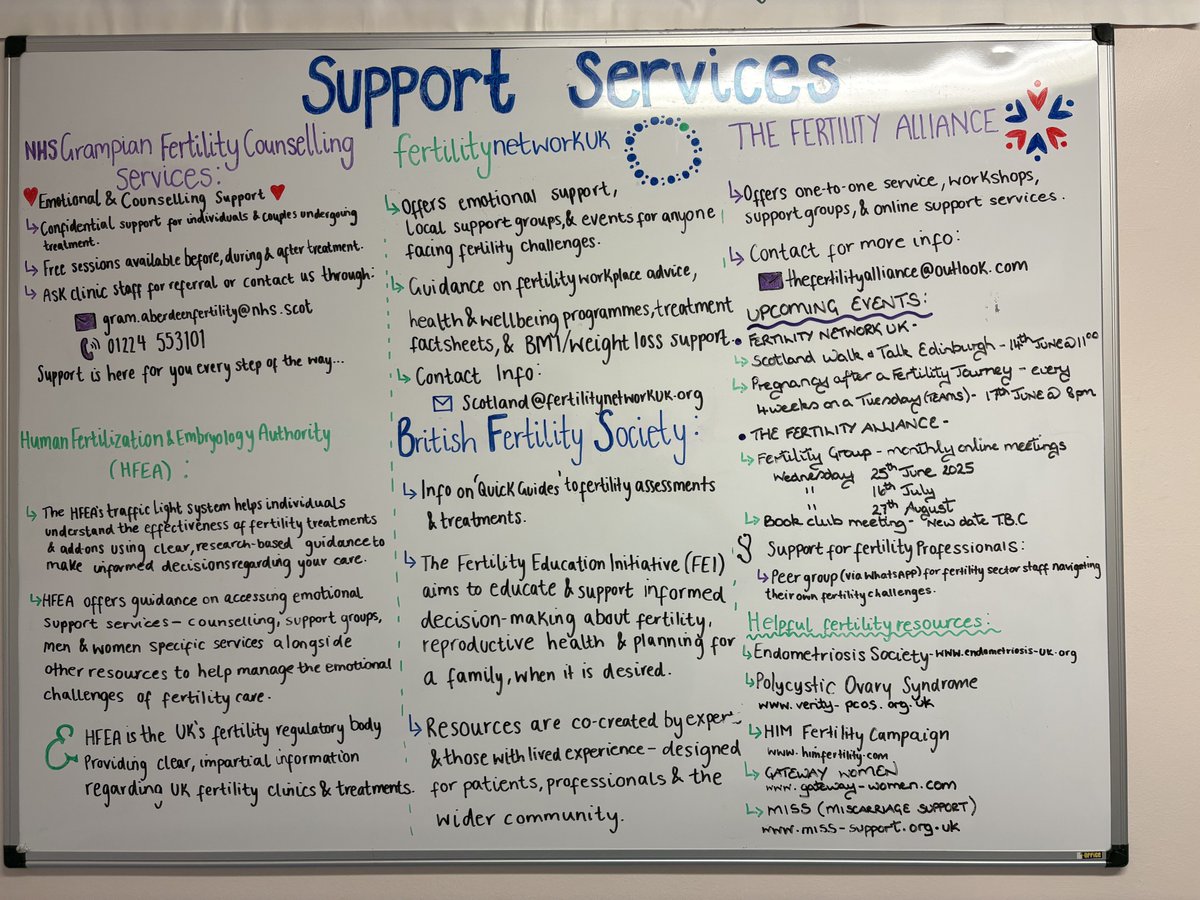 Support Services
NHS Grampian Fertility Counselling
Services:
Emotional & Counselling Support
Confidential support for individuals & couples undergoing
treatment.
Free sessions available before, during & after treatment.
Ask clinic staff for referral or contact us through:
gram.aberdeenfertility@nhs.scot
01224 553101
Support is here for you every step of the way...
Human Fertilization & Embryology Authority
(HFEA):
The HFEA's traffic light system helps individuals
understand the effectiveness of fertility treatments
& add-ons using clear, research-based guidance to
make informed decisions regarding your care.
HFEA offers guidance on accessing emotional
support services - counselling, support groups,
men & women specific services alongside
other resources to help manage the emotional
challenges of fertility care.
HFEA is the UK's fertility regulatory body
Providing clear, impartial information
regarding UK fertility clinics & treatments.
fertilitynetworkUK
Offers emotional support,
local support groups, & events for anyone
facing fertility challenges.
Guidance on fertility workplace advice,
health & wellbeing programmes, treatment
factsheets, & BMI/weight loss support.
Contact Info:
Scotland@fertilitynetworkuk.org
British Fertility Society:
Info on 'Quick Guides' to fertility assessments
& treatments.
The Fertility Education Initiative (FEI)
aims to educate & support informed
decision-making about fertility,
reproductive health & planning for
a family, when it is desired.
Resources are co-created by exper
& those with lived experience - designed
for patients, professionals & the
wider community.
THE FERTILITY ALLIANCE
Offers one-to-one service, workshops,
support groups, & online support services.
Contact for more info:
thefertilityalliance@outlook.com
UPCOMING EVENTS:
• FERTILITY NETWORK UK -
Scotland Walk & Talk Edinburgh - 14th JUNE @ 11:00
Pregnancy after a Fertility Journey - every
4 weeks on a Tuesday (TEAMS) - 17th JUNE @ 8pm
• THE FERTILITY ALLIANCE -
Fertility Group - monthly online meetings
Wednesday 25th June 2025
" 16th July
" 27th August
Book club meeting - New date T.B.C
Support for fertility Professionals:
Peer group (via WhatsApp) for fertility sector staff navigating
their own fertility challenges.
Helpful fertility resources:
Endometriosis Society - www.endometriosis-uk.org
Polycystic Ovary Syndrome
www.verity-pcos.org.uk
HIM Fertility Campaign
www.himfertility.com
GATEWAY WOMEN
www.gateway-women.com
MISS (MISCARRIAGE SUPPORT)
www.miss-support.org.uk